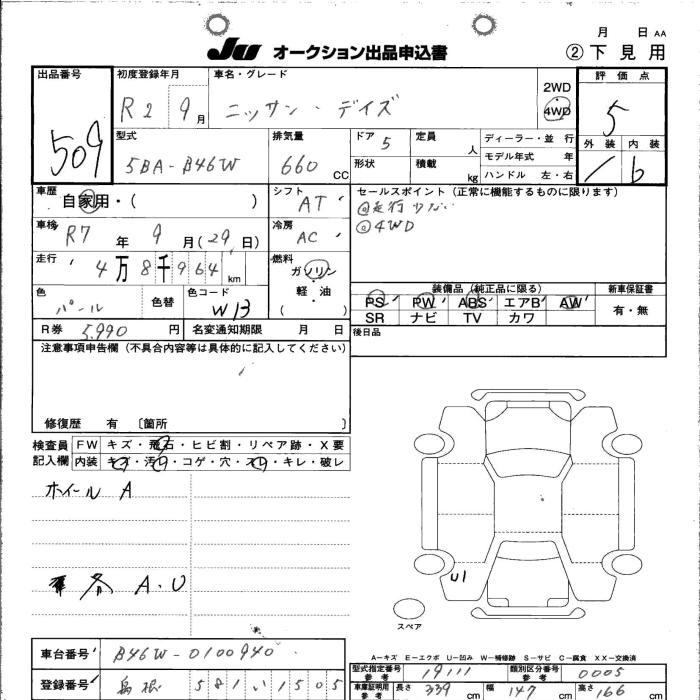 月 日 AA
JU オークション出品申込書 ② 下見用
出品番号 初度登録年月 車名・グレード 2WD 評価点
509 R2 9月 ニッサン・デイズ 4WD 5
型式 排気量 ドア 5 定員 人 ディーラー・並 行 外装 内装
5BA-B46W 660 CC 形状 積載 kg モデル年式 年
ハンドル 左・右 b
車歴 自家用・( ) シフト AT セールスポイント (正常に機能するものに限ります)
◎走行少ない
車検 R7年 9月(29日) 冷房 AC ◎4WD
走行 4万8千964km 燃料 ガソリン 軽・油 ( )
装備品 (純正品に限る) 新車保証書
色 パール 色替 色コード W13 PS PW ABS エアB AW 有・無
SR ナビ TV カワ
R券 5,990円 名変通知期限 月 日 後日品
注意事項申告欄 (不具合内容等は具体的に記入してください)
修復歴 有 〔箇所 〕
検査員 FW キズ・飛石・ヒビ割・リペア跡・X要
記入欄 内装 キズ・汚レ・コゲ・穴・スレ・キレ・破レ
ホイール A
A.U
U1
スペア
A-キズ E-エクボ U-凹み W-補修跡 S-サビ C-腐食 XX-交換済
車台番号 B46W-0100940 型式指定番号 参考 19111 類別区分番号 参考 0005
登録番号 島根 581 い 1505 車庫証明用 参考 長さ 339 cm 幅 147 cm 高さ 166 cm